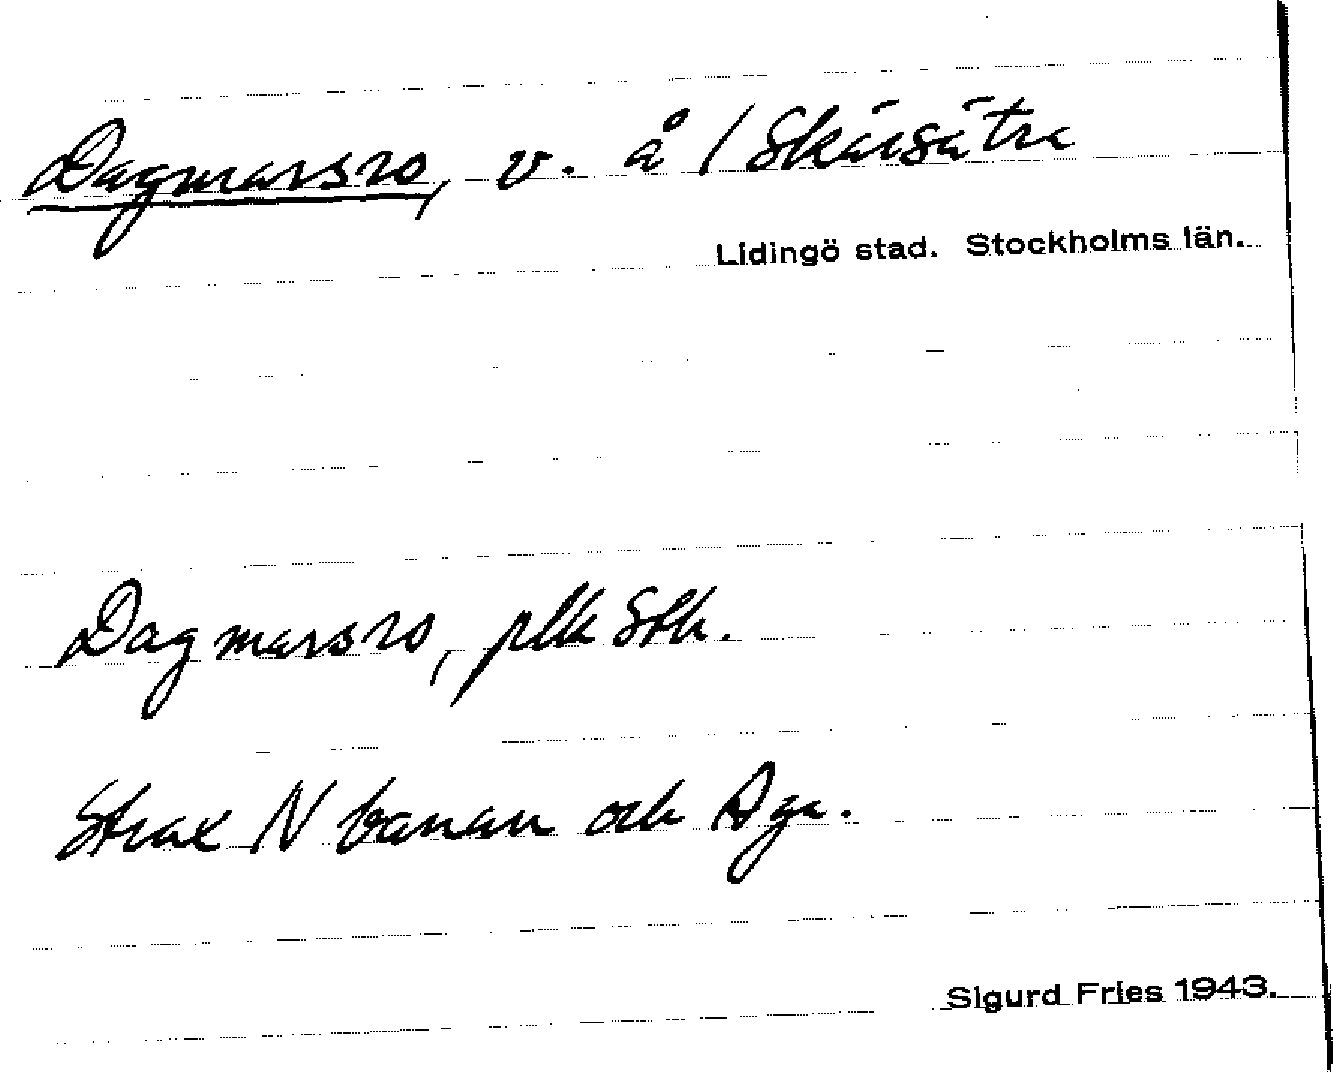 Dagmarsro, v. å / Skärsätra
Lidingö stad. Stockholms län.
Dagmarsro, plk Sth.
Strax N banan och Äga.
Sigurd Fries 1943.